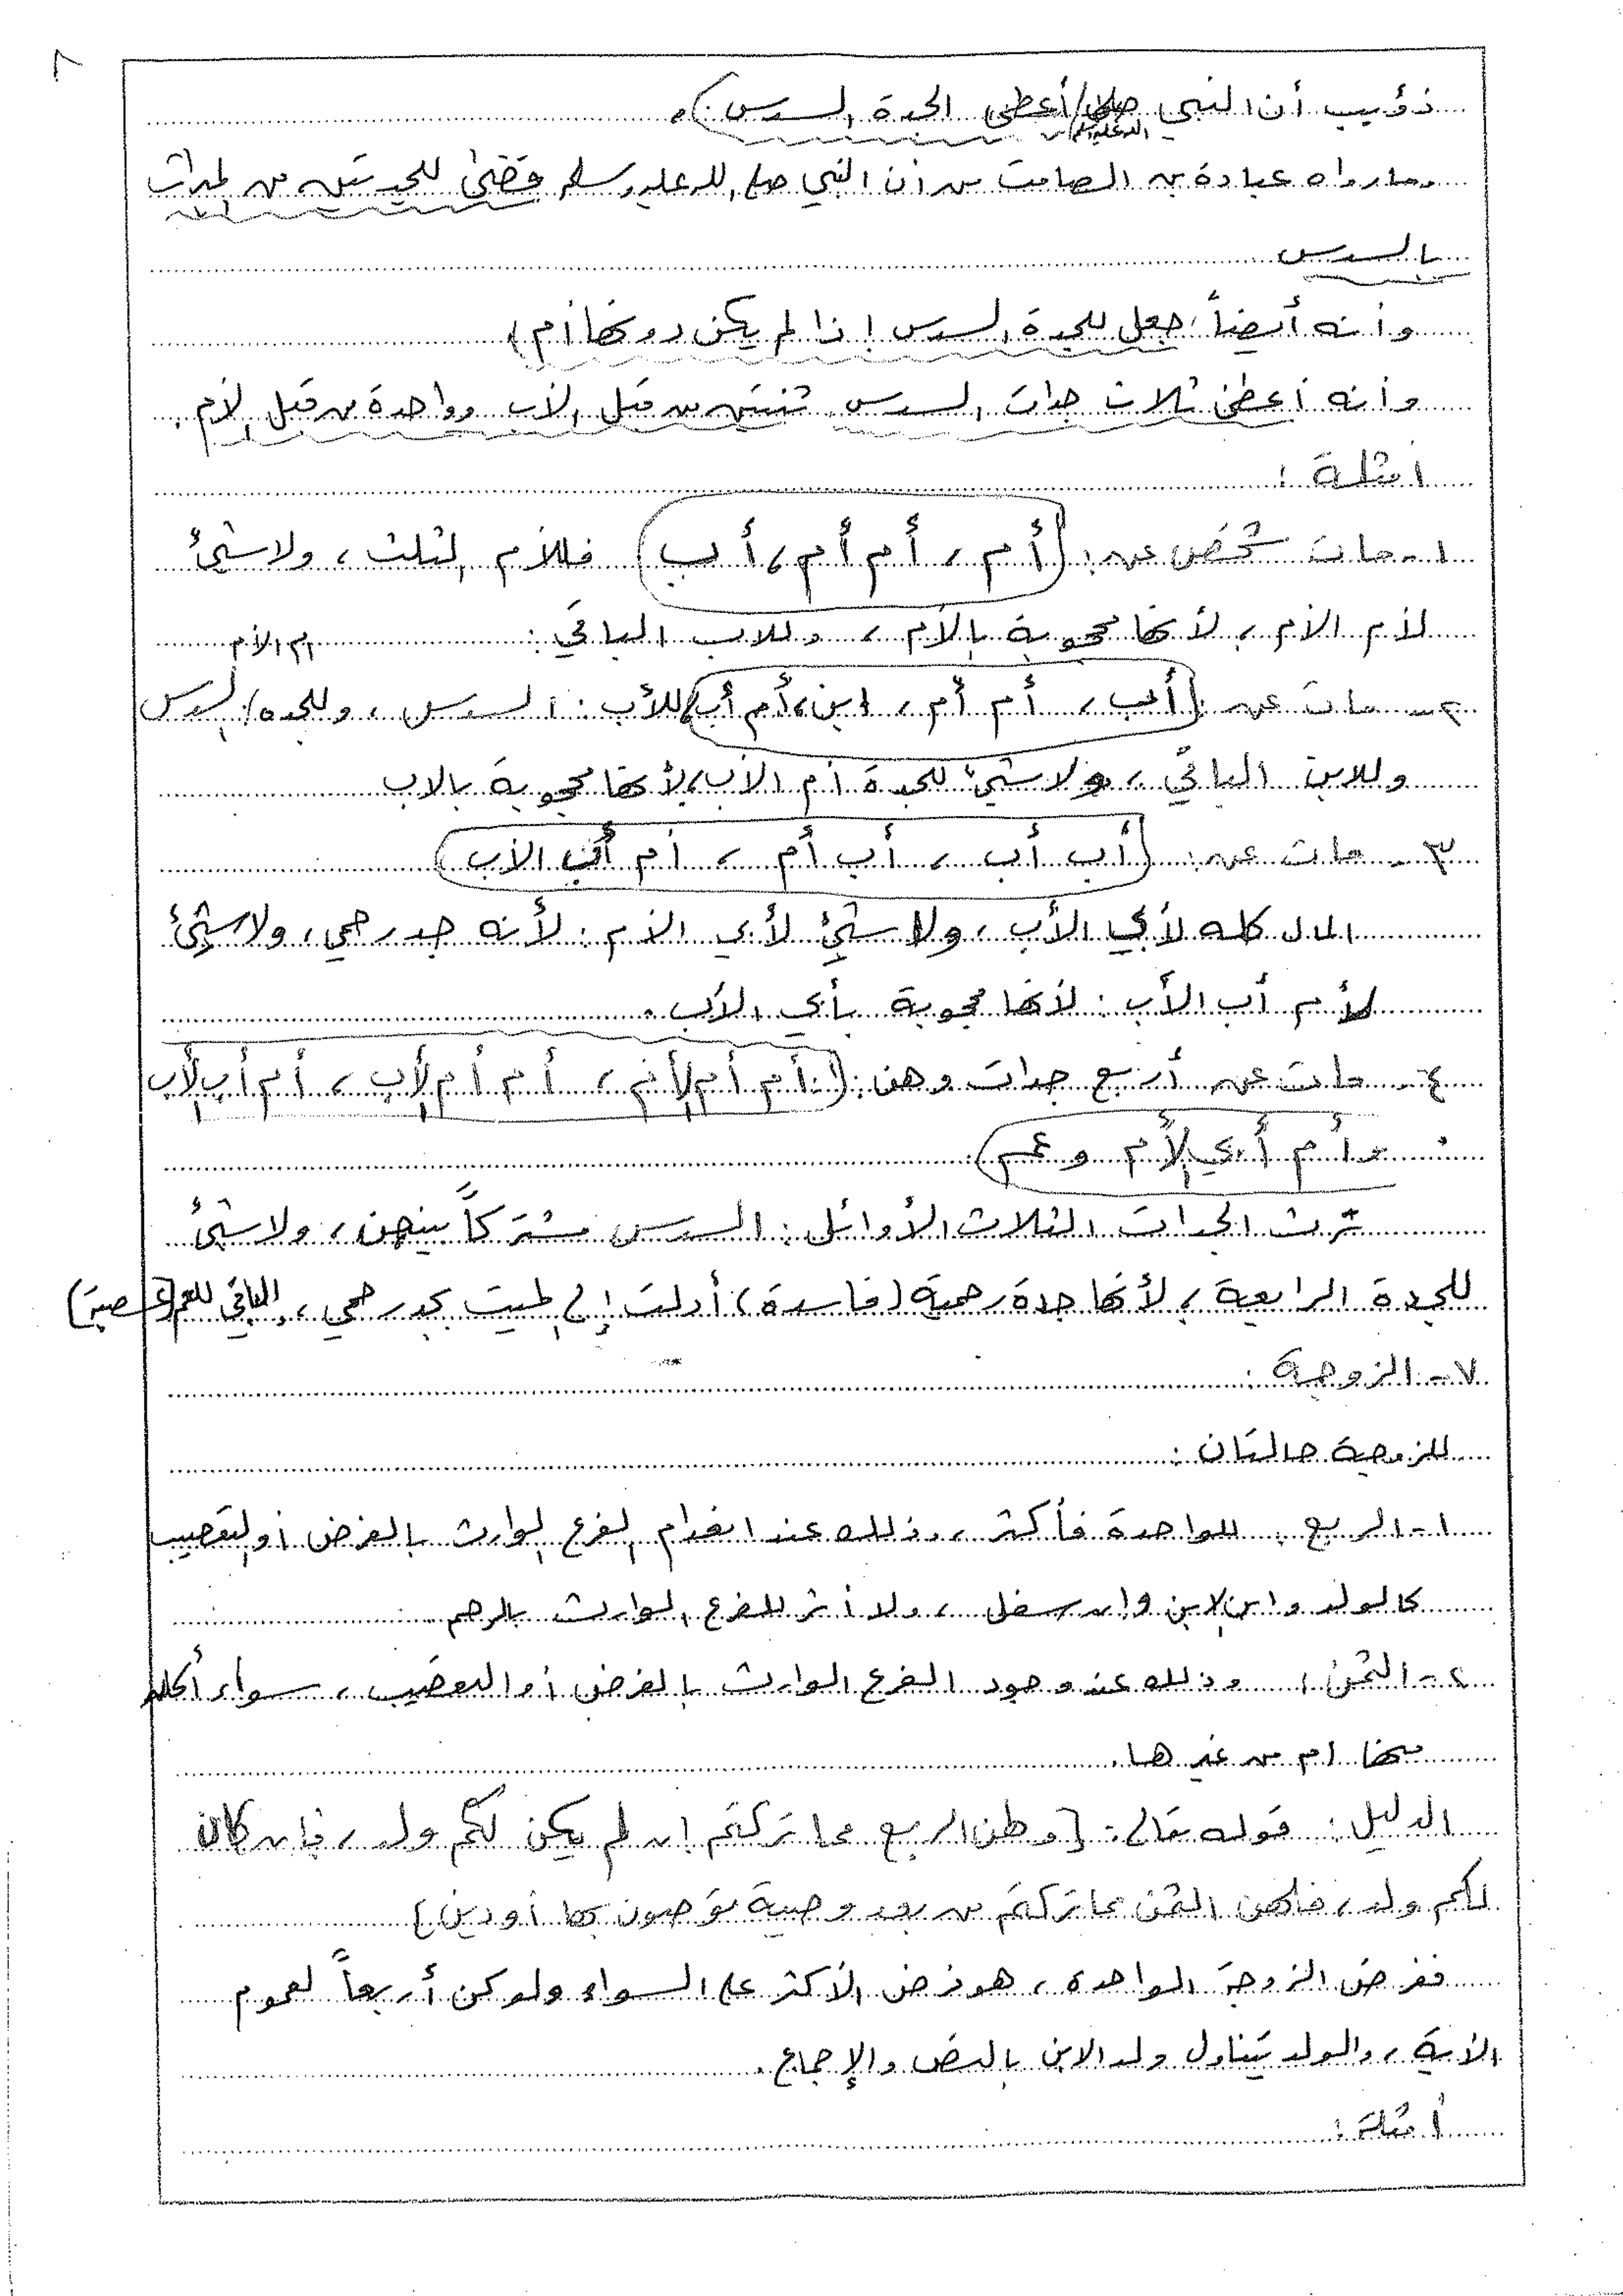 ٨
ذؤيب أن النبي صلى الله عليه وسلم أعطى الجدة السدس).
وما رواه عبادة بن الصامت من أن النبي صلى الله عليه وسلم قضى للجدتين من الميراث
بالسدس
وأنه أيضاً، جعل للجدة السدس إذا لم يكن دونها أم)
وأنه أعطى ثلاث جدات السدس ثنتين من قبل الأب وواحدة من قبل الأم.
أمثلة :
١- مات شخص عن: (أم، أم أم، أب) فللأم الثلث، ولا شيئ
لأم الأم، لأنها محجوبة بالأم، وللاب الباقي:
٢- مات عن: (أب، أم أم، ابن، أم أب) للأب: السدس، وللجده/ أم الأم السدس
وللابن الباقي، ولا شيئ للجدة أم الأب، لأنها محجوبة بالاب
٣- مات عن: (أب أب، أب أم، أم أب الأب)
المال كله لأبي الأب، ولا شيئ لأبي الأم: لأنه جد رحمي، ولا شيئ
لأم أب الأب: لأنها محجوبة بأبي الأب.
٤- مات عن أربع جدات وهن: (أم أم الأم، أم أم الأب، أم أب الأب
وأم أبي الأم وعم)
ترث الجدات الثلاث الأوائل: السدس مشتركاً بينهن، ولا شيئ
للجدة الرابعة، لأنها جدة رحمية (فاسدة) أدلت إلى الميت بجد رحمي، والباقي للعم (عصبة)
٧- الزوجة :
للزوجة حالتان :
١- الربع: للواحدة فأكثر، وذلك عند انعدام الفرع الوارث بالفرض أو التعصيب
كالولد وابن الابن وإن سفل، ولا أثر للفرع الوارث بالرحم
٢- الثمن، وذلك عند وجود الفرع الوارث بالفرض أو التعصيب، سواء أكان
منها ام من غيرها.
الدليل: قوله تعالى: {ولهن الربع مما تركتم إن لم يكن لكم ولد، فإن كان
لكم ولد، فلهن الثمن مما تركتم من بعد وصية توصون بها أو دين}
ففرض الزوجة الواحدة، هو فرض الأكثر على السواء ولو كن أربعاً لعموم
الآية، والولد يتناول ولد الابن بالنص والإجماع.
أمثلة :